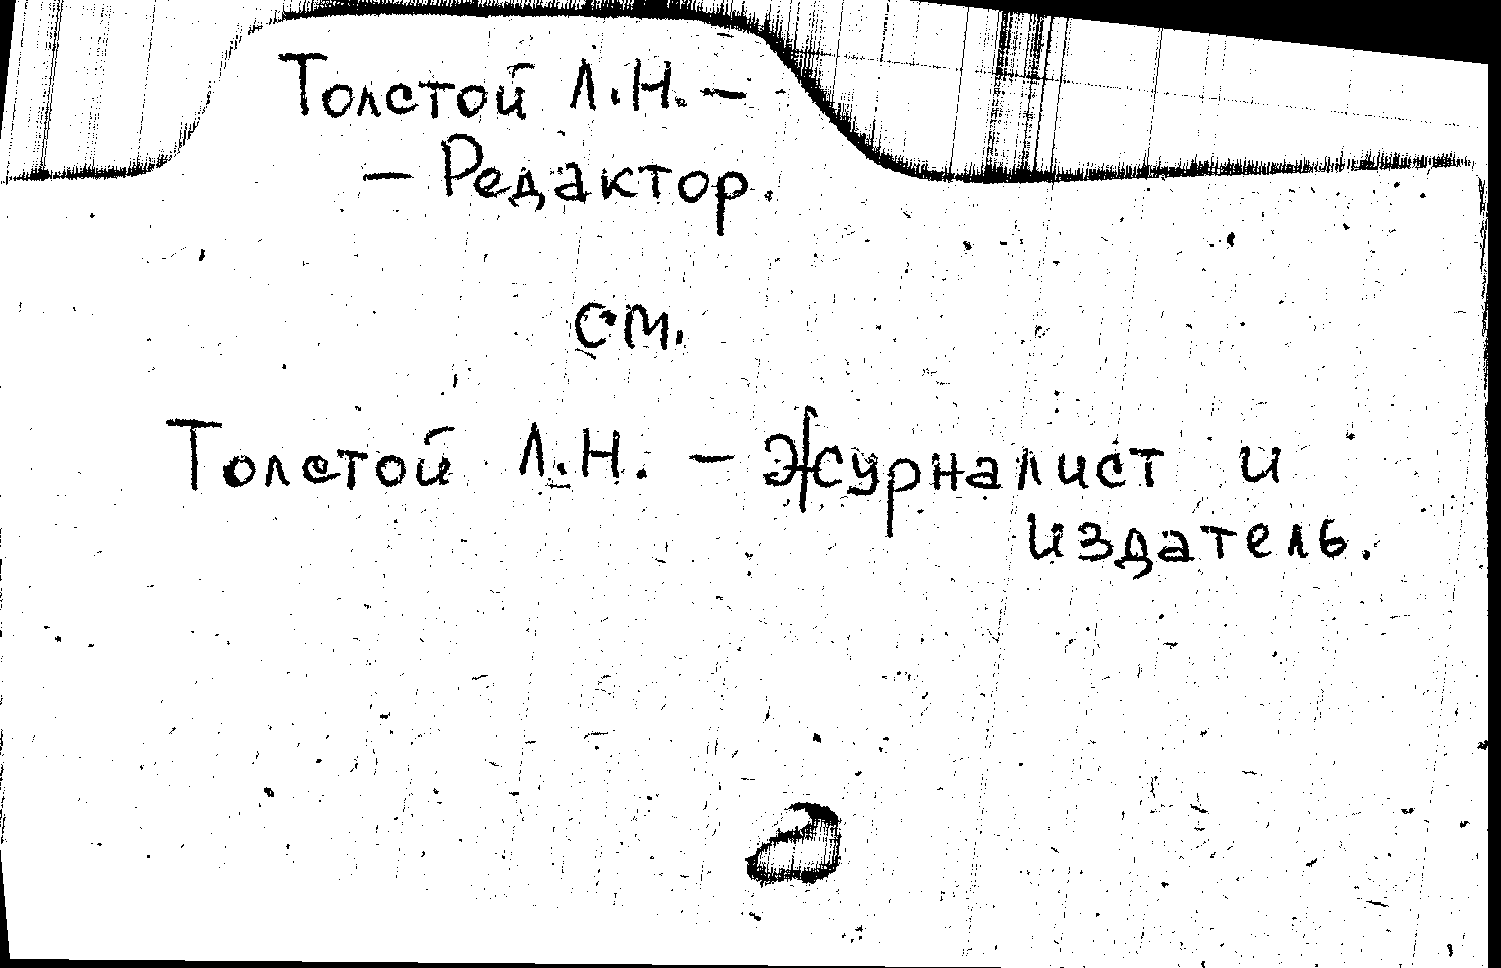 Толстой Л.Н. —
— Редактор.
см.
Толстой Л.Н. — Журналист и
издатель.